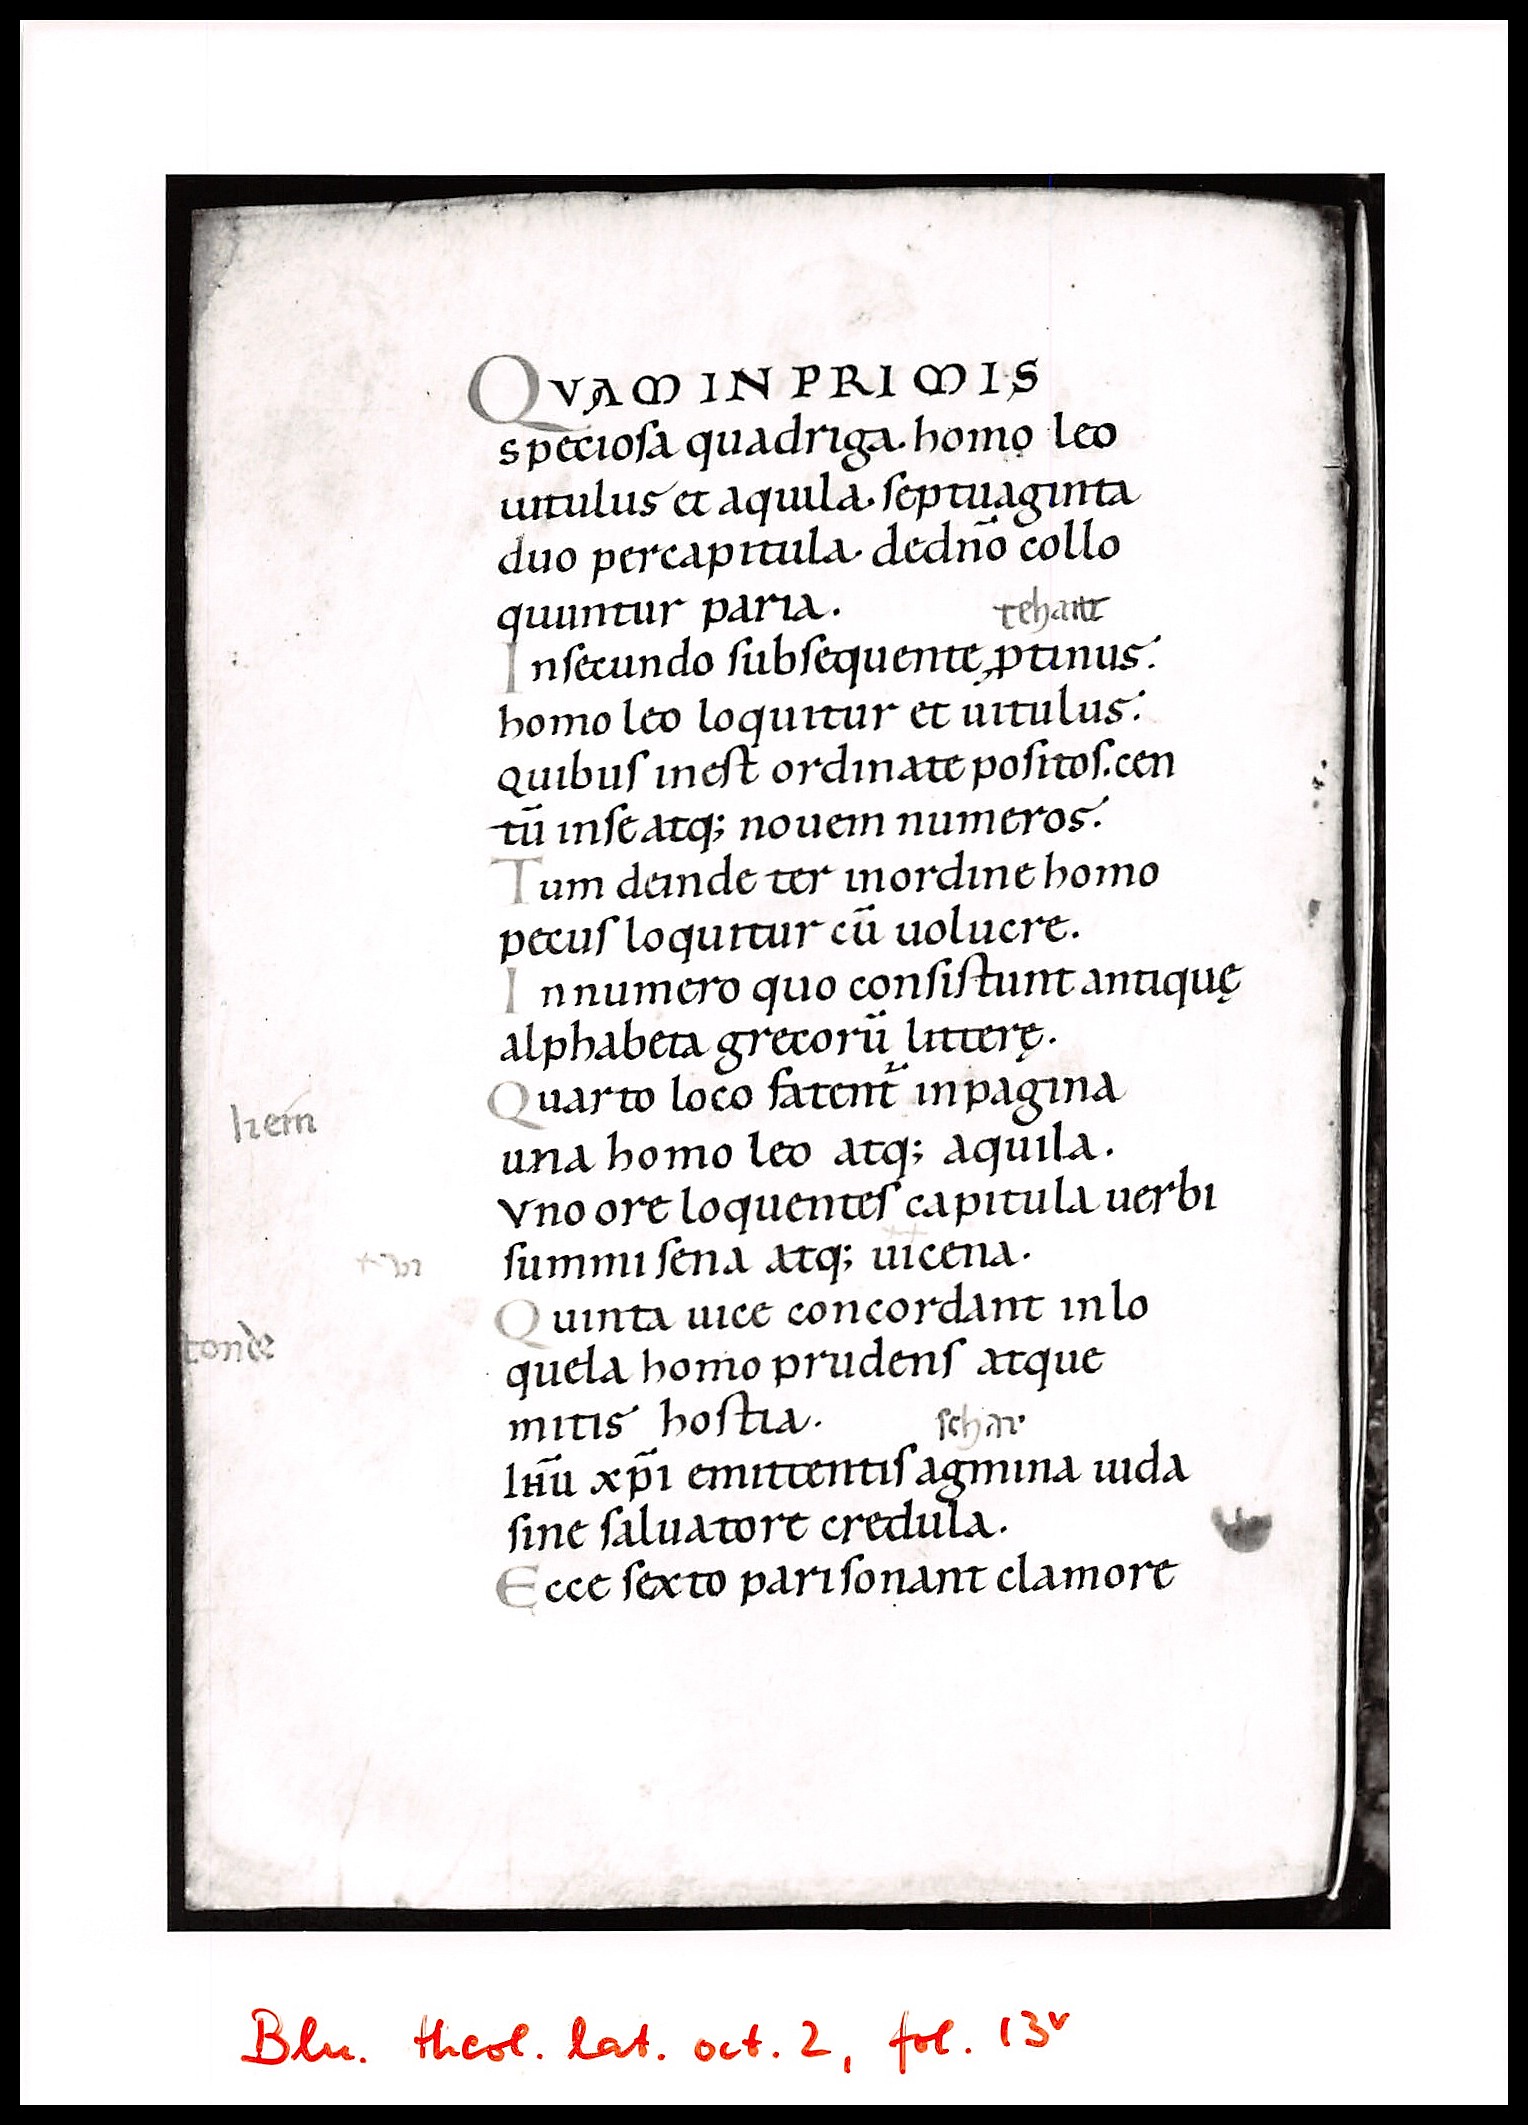 QVAM IN PRIMIS
speciosa quadriga. homo leo
uitulus et aquila. septuaginta
duo percapitula. dedno̅ collo
quuntur paria.
tehant
Insecundo subsequente, ꝓtinus:
homo leo loquitur et uitulus:
quibus inest ordinate positos. cen
tu̅ inse atq; nouem numeros:
Tum deinde ter inordine homo
pecus loquitur cu̅ uolucre.
Innumero quo consistunt antiquę
alphabeta grecoru̅ litterę.
Quarto loco fatent̅ inpagina
hem
una homo leo atq; aquila.
Vno ore loquentes capitula uerbi
summi sena atq; uicena.
Quinta uice concordant inlo
tonde
quela homo prudens atque
mitis hostia.
schar
Ihu̅ xp̅i emittentis agmina uida
sine saluatore credula.
Ecce sexto pari sonant clamore
Bln. theol. lat. oct. 2, fol. 13v